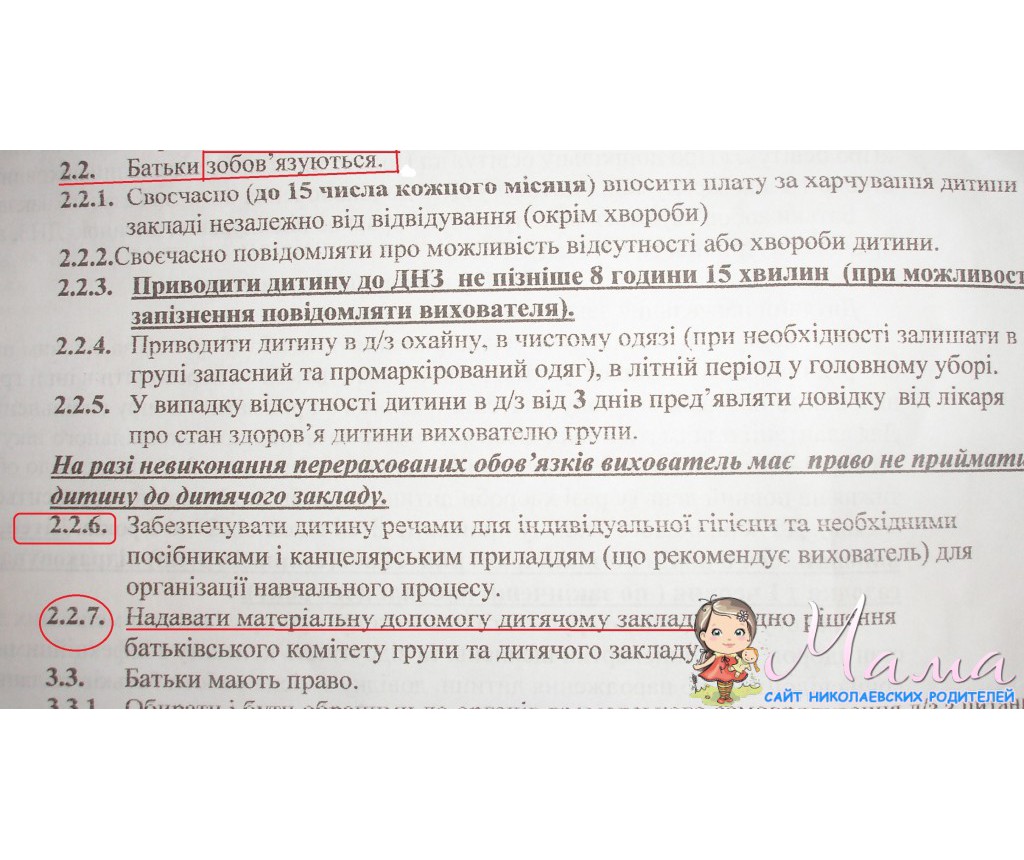 2.2. Батьки зобов’язуються.
2.2.1. Своєчасно (до 15 числа кожного місяця) вносити плату за харчування дитини
закладі незалежно від відвідування (окрім хвороби)
2.2.2.Своєчасно повідомляти про можливість відсутності або хвороби дитини.
2.2.3. Приводити дитину до ДНЗ не пізніше 8 години 15 хвилин (при можливост
запізнення повідомляти вихователя).
2.2.4. Приводити дитину в д/з охайну, в чистому одязі (при необхідності залишати в
групі запасний та промаркірований одяг), в літній період у головному уборі.
2.2.5. У випадку відсутності дитини в д/з від 3 днів пред’являти довідку від лікаря
про стан здоров’я дитини вихователю групи.
На разі невиконання перерахованих обов’язків вихователь має право не приймати
дитину до дитячого закладу.
2.2.6. Забезпечувати дитину речами для індивідуальної гігієни та необхідними
посібниками і канцелярським приладдям (що рекомендує вихователь) для
організації навчального процесу.
2.2.7. Надавати матеріальну допомогу дитячому заклад дно рішення
батьківського комітету групи та дитячого закладу
3.3. Батьки мають право.
3.3.1 Обирати і бути обраними до органів громадського самоврядування д/з з питан
Мама
САЙТ НИКОЛАЕВСКИХ РОДИТЕЛЕЙ